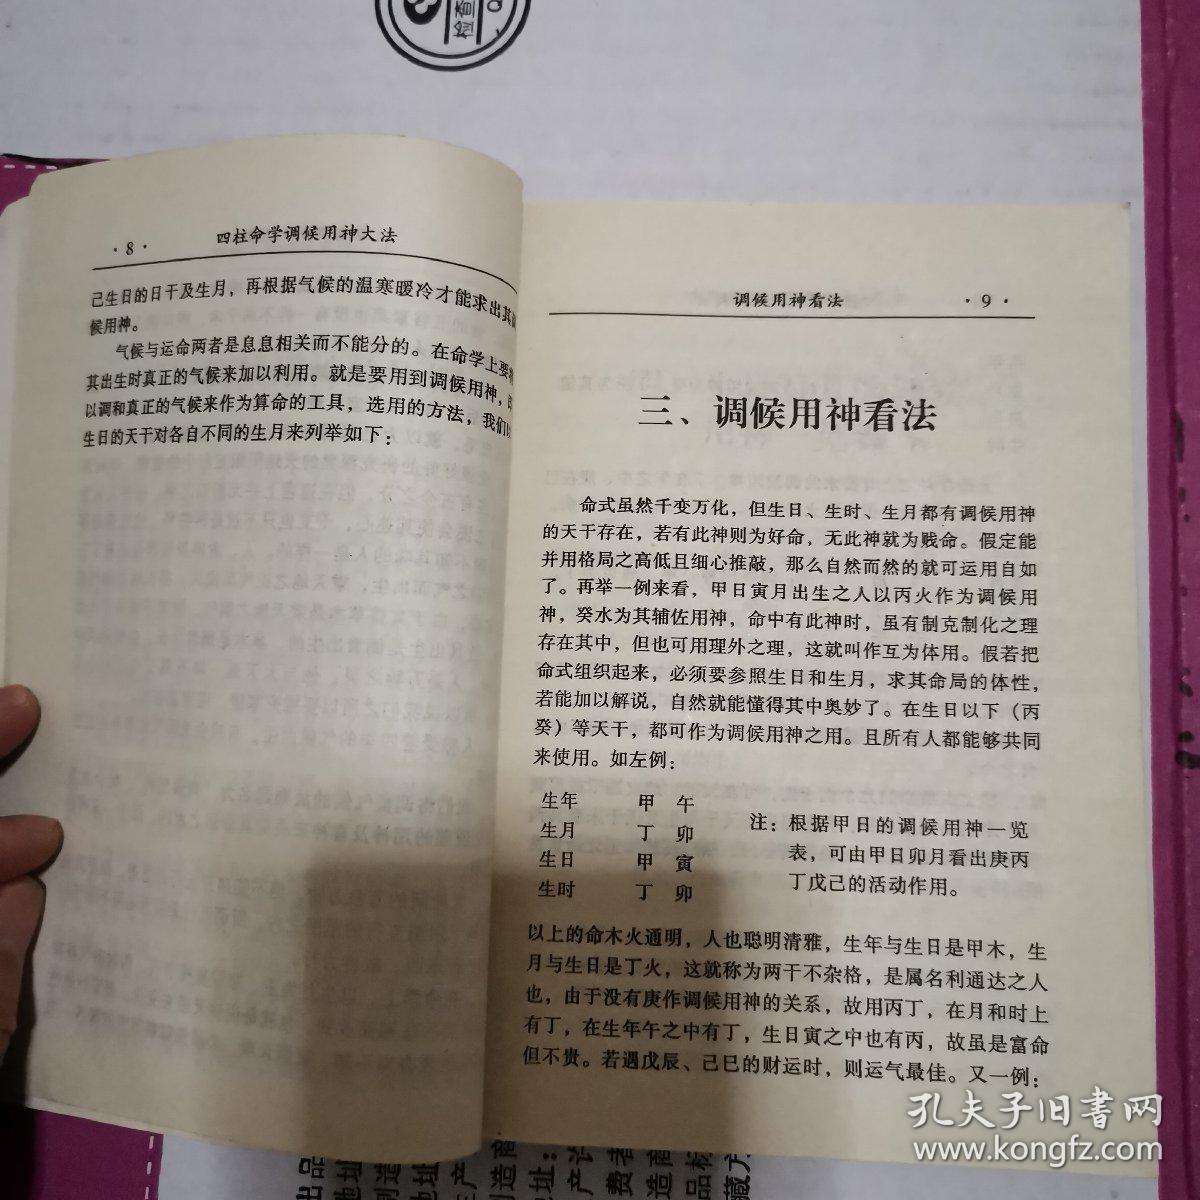 检查
· 8 ·
四柱命学调候用神大法
己生日的日干及生月，再根据气候的温寒暖冷才能求出其
候用神。
气候与运命两者是息息相关而不能分的。在命学上要
其出生时真正的气候来加以利用。就是要用到调候用神，
以调和真正的气候来作为算命的工具，选用的方法，我们
生日的天干对各自不同的生月来列举如下：
调候用神看法
· 9 ·
三、调候用神看法
命式虽然千变万化，但生日、生时、生月都有调候用神
的天干存在，若有此神则为好命，无此神就为贱命。假定能
并用格局之高低且细心推敲，那么自然而然的就可运用自如
了。再举一例来看，甲日寅月出生之人以丙火作为调候用
神，癸水为其辅佐用神，命中有此神时，虽有制克制化之理
存在其中，但也可用理外之理，这就叫作互为体用。假若把
命式组织起来，必须要参照生日和生月，求其命局的体性，
若能加以解说，自然就能懂得其中奥妙了。在生日以下（丙
癸）等天干，都可作为调候用神之用。且所有人都能够共同
来使用。如左例：
生年 甲 午
生月 丁 卯
生日 甲 寅
生时 丁 卯
注：根据甲日的调候用神一览
表，可由甲日卯月看出庚丙
丁戊己的活动作用。
以上的命木火通明，人也聪明清雅，生年与生日是甲木，生
月与生日是丁火，这就称为两干不杂格，是属名利通达之人
也，由于没有庚作调候用神的关系，故用丙丁，在月和时上
有丁，在生年午之中有丁，生日寅之中也有丙，故虽是富命
但不贵。若遇戊辰、己巳的财运时，则运气最佳。又一例：
孔夫子旧书网
www.kongfz.com